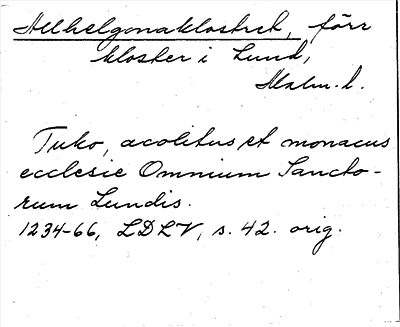 Allhelgonaklostret, förr
kloster i Lund,
Malm. l.
Tuko, acolitus et monacus
ecclesie Omnium Sancto-
rum Lundis.
1234-66, LDLV, s. 42. orig.